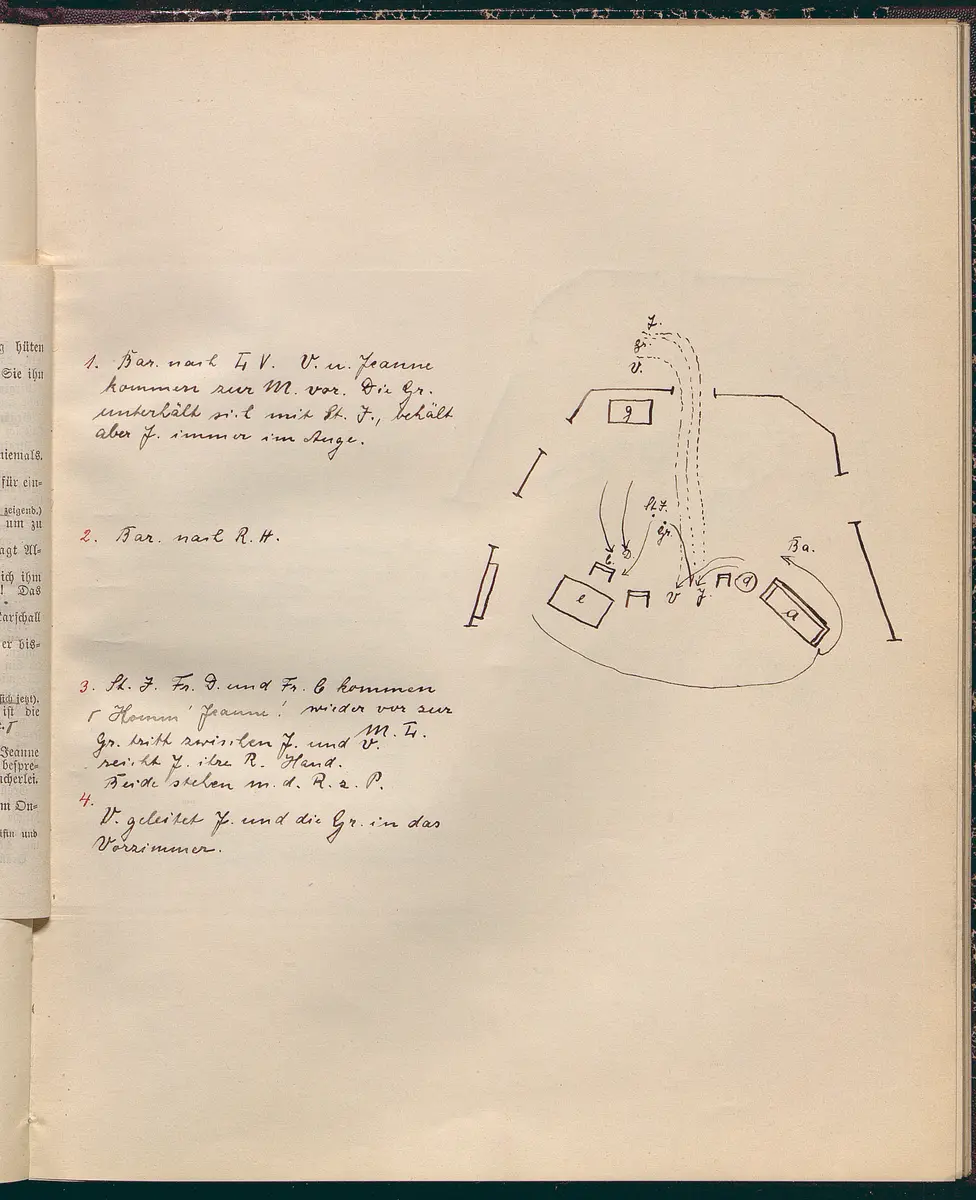 g hüten
Sie ihn
niemals.
für ein=
zeigend.)
um zu
agt Al=
ich ihm
! Das
arschall
er bis=
sich jetzt).
ist die
Jeanne
bespre=
cherlei.
m On=
äfin und
1. Bar. nach L V. V. u. Jeanne
kommen zur M. vor. Die Gr.
unterhält sich mit St. J., behält
aber J. immer im Auge.
2. Bar. nach R. H.
3. St. J. Fr. D. und Fr. C kommen
"Komm' Jeanne! wieder vor zur
M. L.
Gr. tritt zwischen J. und V.
reicht J. ihre R. Hand.
Beide stehen m. d. R. z. P.
4.
V. geleitet J. und die Gr. in das
Vorzimmer.
J.
Gr.
V.
g
St. J.
Gr.
C
D.
Ba.
e
V
J.
d
a